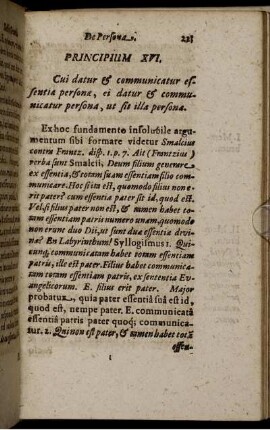 De Persona.
PRINCIPIUM XVI.
Cui datur & communicatur es-
sentia persona, ei datur & commu-
nicatur persona, ut sit illa persona.
Ex hoc fundamento insolubile argu-
mentum sibi formare videtur Smalcius
contra Frantz. disp. 1. p. 7. Ait (Frantzius)
verba sunt Smalcii, Deum filium generare
ex essentia, & totam suam essentiam filio com-
municare. Hoc si ita est, quomodo filius non e-
rit pater? cum essentia pater sit id, quod est.
Vel, si filius pater non est, & tamen habet to-
tam essentiam patris numero unam, quomodo
non erunt duo Dii, ut sunt duæ essentiæ divi-
næ? En Labyrinthum! Syllogismus 1. Qui-
cunq; communicatam habet totam essentiam
patris, ille est pater. Filius habet communica-
tam totam essentiam patris, ex sententia Ev-
angelicorum. E. filius erit pater. Major
probatur, quia pater essentiâ suâ est id,
quod est, nempe pater. E. communicatâ
essentiâ patris pater quoq; communica-
tur. 2. Qui non est pater, & tamen habet totã
essen-